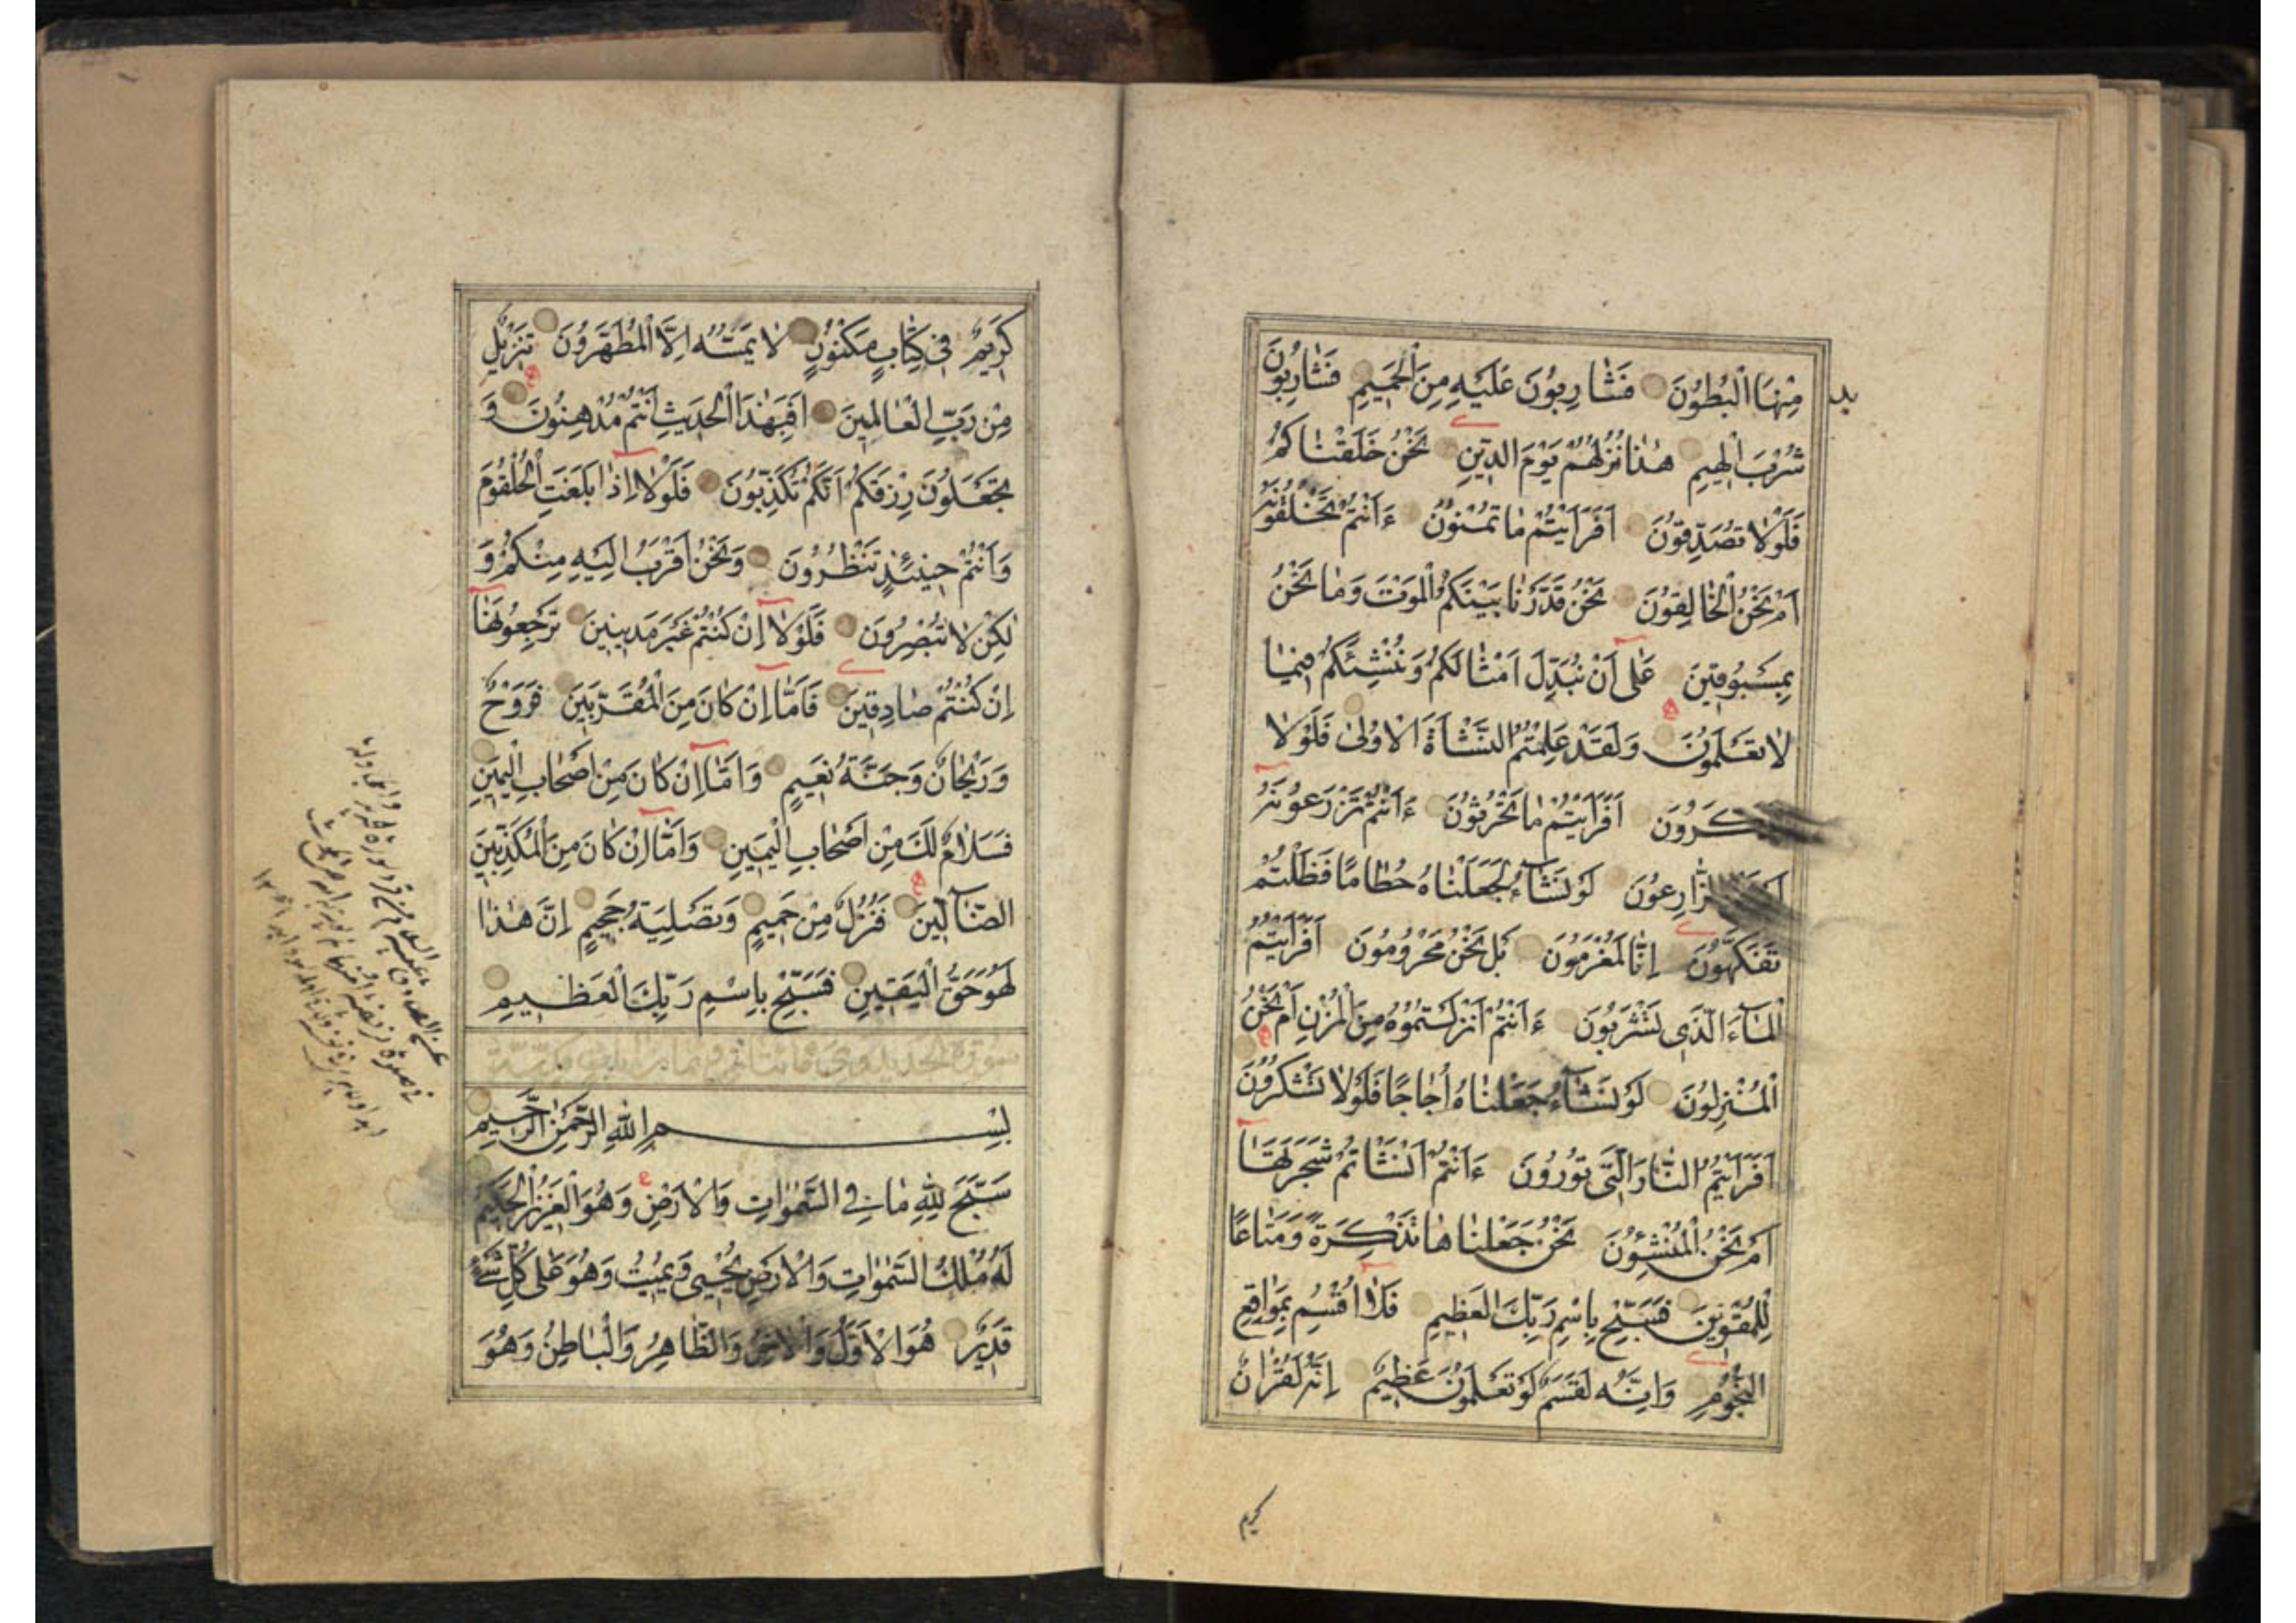 مِنْهَا الْبُطُوْنَ فَشَارِبُوْنَ عَلَيْهِ مِنَ الْحَمِيْمِ فَشَارِبُوْنَ
شُرْبَ الْهِيْمِ هٰذَا نُزُلُهُمْ يَوْمَ الدِّيْنِ نَحْنُ خَلَقْنَاكُمْ
فَلَوْلَا تُصَدِّقُوْنَ اَفَرَاَيْتُمْ مَا تُمْنُوْنَ ءَاَنْتُمْ تَخْلُقُوْنَهُ
اَمْ نَحْنُ الْخَالِقُوْنَ نَحْنُ قَدَّرْنَا بَيْنَكُمُ الْمَوْتَ وَمَا نَحْنُ
بِمَسْبُوْقِيْنَ عَلٰى اَنْ نُبَدِّلَ اَمْثَالَكُمْ وَنُنْشِئَكُمْ فِيْمَا
لَا تَعْلَمُوْنَ وَلَقَدْ عَلِمْتُمُ النَّشْاَةَ الْاُوْلٰى فَلَوْلَا
اَفَرَاَيْتُمْ مَا تَحْرُثُوْنَ ءَاَنْتُمْ تَزْرَعُوْنَهُ
الزَّارِعُوْنَ لَوْ نَشَآءُ لَجَعَلْنَاهُ حُطَامًا فَظَلْتُمْ
تَفَكَّهُوْنَ اِنَّا لَمُغْرَمُوْنَ بَلْ نَحْنُ مَحْرُوْمُوْنَ اَفَرَاَيْتُمُ
الْمَآءَ الَّذِى تَشْرَبُوْنَ ءَاَنْتُمْ اَنْزَلْتُمُوْهُ مِنَ الْمُزْنِ اَمْ نَحْنُ
الْمُنْزِلُوْنَ لَوْ نَشَآءُ جَعَلْنَاهُ اُجَاجًا فَلَوْلَا تَشْكُرُوْنَ
اَفَرَاَيْتُمُ النَّارَ الَّتِى تُوْرُوْنَ ءَاَنْتُمْ اَنْشَاْتُمْ شَجَرَتَهَا
اَمْ نَحْنُ الْمُنْشِئُوْنَ نَحْنُ جَعَلْنَاهَا تَذْكِرَةً وَمَتَاعًا
لِلْمُقْوِيْنَ فَسَبِّحْ بِاسْمِ رَبِّكَ الْعَظِيْمِ فَلَا اُقْسِمُ بِمَوَاقِعِ
النُّجُوْمِ وَاِنَّهُ لَقَسَمٌ لَوْ تَعْلَمُوْنَ عَظِيْمٌ اِنَّهُ لَقُرْاٰنٌ
كريم
كَرِيْمٌ فِى كِتَابٍ مَكْنُوْنٍ لَا يَمَسُّهُ اِلَّا الْمُطَهَّرُوْنَ تَنْزِيْلٌ
مِنْ رَبِّ الْعَالَمِيْنَ اَفَبِهٰذَا الْحَدِيْثِ اَنْتُمْ مُدْهِنُوْنَ وَ
تَجْعَلُوْنَ رِزْقَكُمْ اَنَّكُمْ تُكَذِّبُوْنَ فَلَوْلَا اِذَا بَلَغَتِ الْحُلْقُوْمَ
وَاَنْتُمْ حِيْنَئِذٍ تَنْظُرُوْنَ وَنَحْنُ اَقْرَبُ اِلَيْهِ مِنْكُمْ وَ
لٰكِنْ لَا تُبْصِرُوْنَ فَلَوْلَا اِنْ كُنْتُمْ غَيْرَ مَدِيْنِيْنَ تَرْجِعُوْنَهَا
اِنْ كُنْتُمْ صَادِقِيْنَ فَاَمَّا اِنْ كَانَ مِنَ الْمُقَرَّبِيْنَ فَرَوْحٌ
وَرَيْحَانٌ وَجَنَّةُ نَعِيْمٍ وَاَمَّا اِنْ كَانَ مِنْ اَصْحَابِ الْيَمِيْنِ
فَسَلَامٌ لَكَ مِنْ اَصْحَابِ الْيَمِيْنِ وَاَمَّا اِنْ كَانَ مِنَ الْمُكَذِّبِيْنَ
الضَّآلِّيْنَ فَنُزُلٌ مِنْ حَمِيْمٍ وَتَصْلِيَةُ جَحِيْمٍ اِنَّ هٰذَا
لَهُوَ حَقُّ الْيَقِيْنِ فَسَبِّحْ بِاسْمِ رَبِّكَ الْعَظِيْمِ
سورة الحديد
بِسْمِ اللّٰهِ الرَّحْمٰنِ الرَّحِيْمِ
سَبَّحَ لِلّٰهِ مَا فِى السَّمٰوَاتِ وَالْاَرْضِ وَهُوَ الْعَزِيْزُ الْحَكِيْمُ
لَهُ مُلْكُ السَّمٰوَاتِ وَالْاَرْضِ يُحْيِى وَيُمِيْتُ وَهُوَ عَلٰى كُلِّ شَىْءٍ
قَدِيْرٌ هُوَ الْاَوَّلُ وَالْاٰخِرُ وَالظَّاهِرُ وَالْبَاطِنُ وَهُوَ